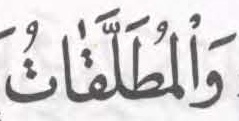 وَالْمُطَلَّقَٰتُ